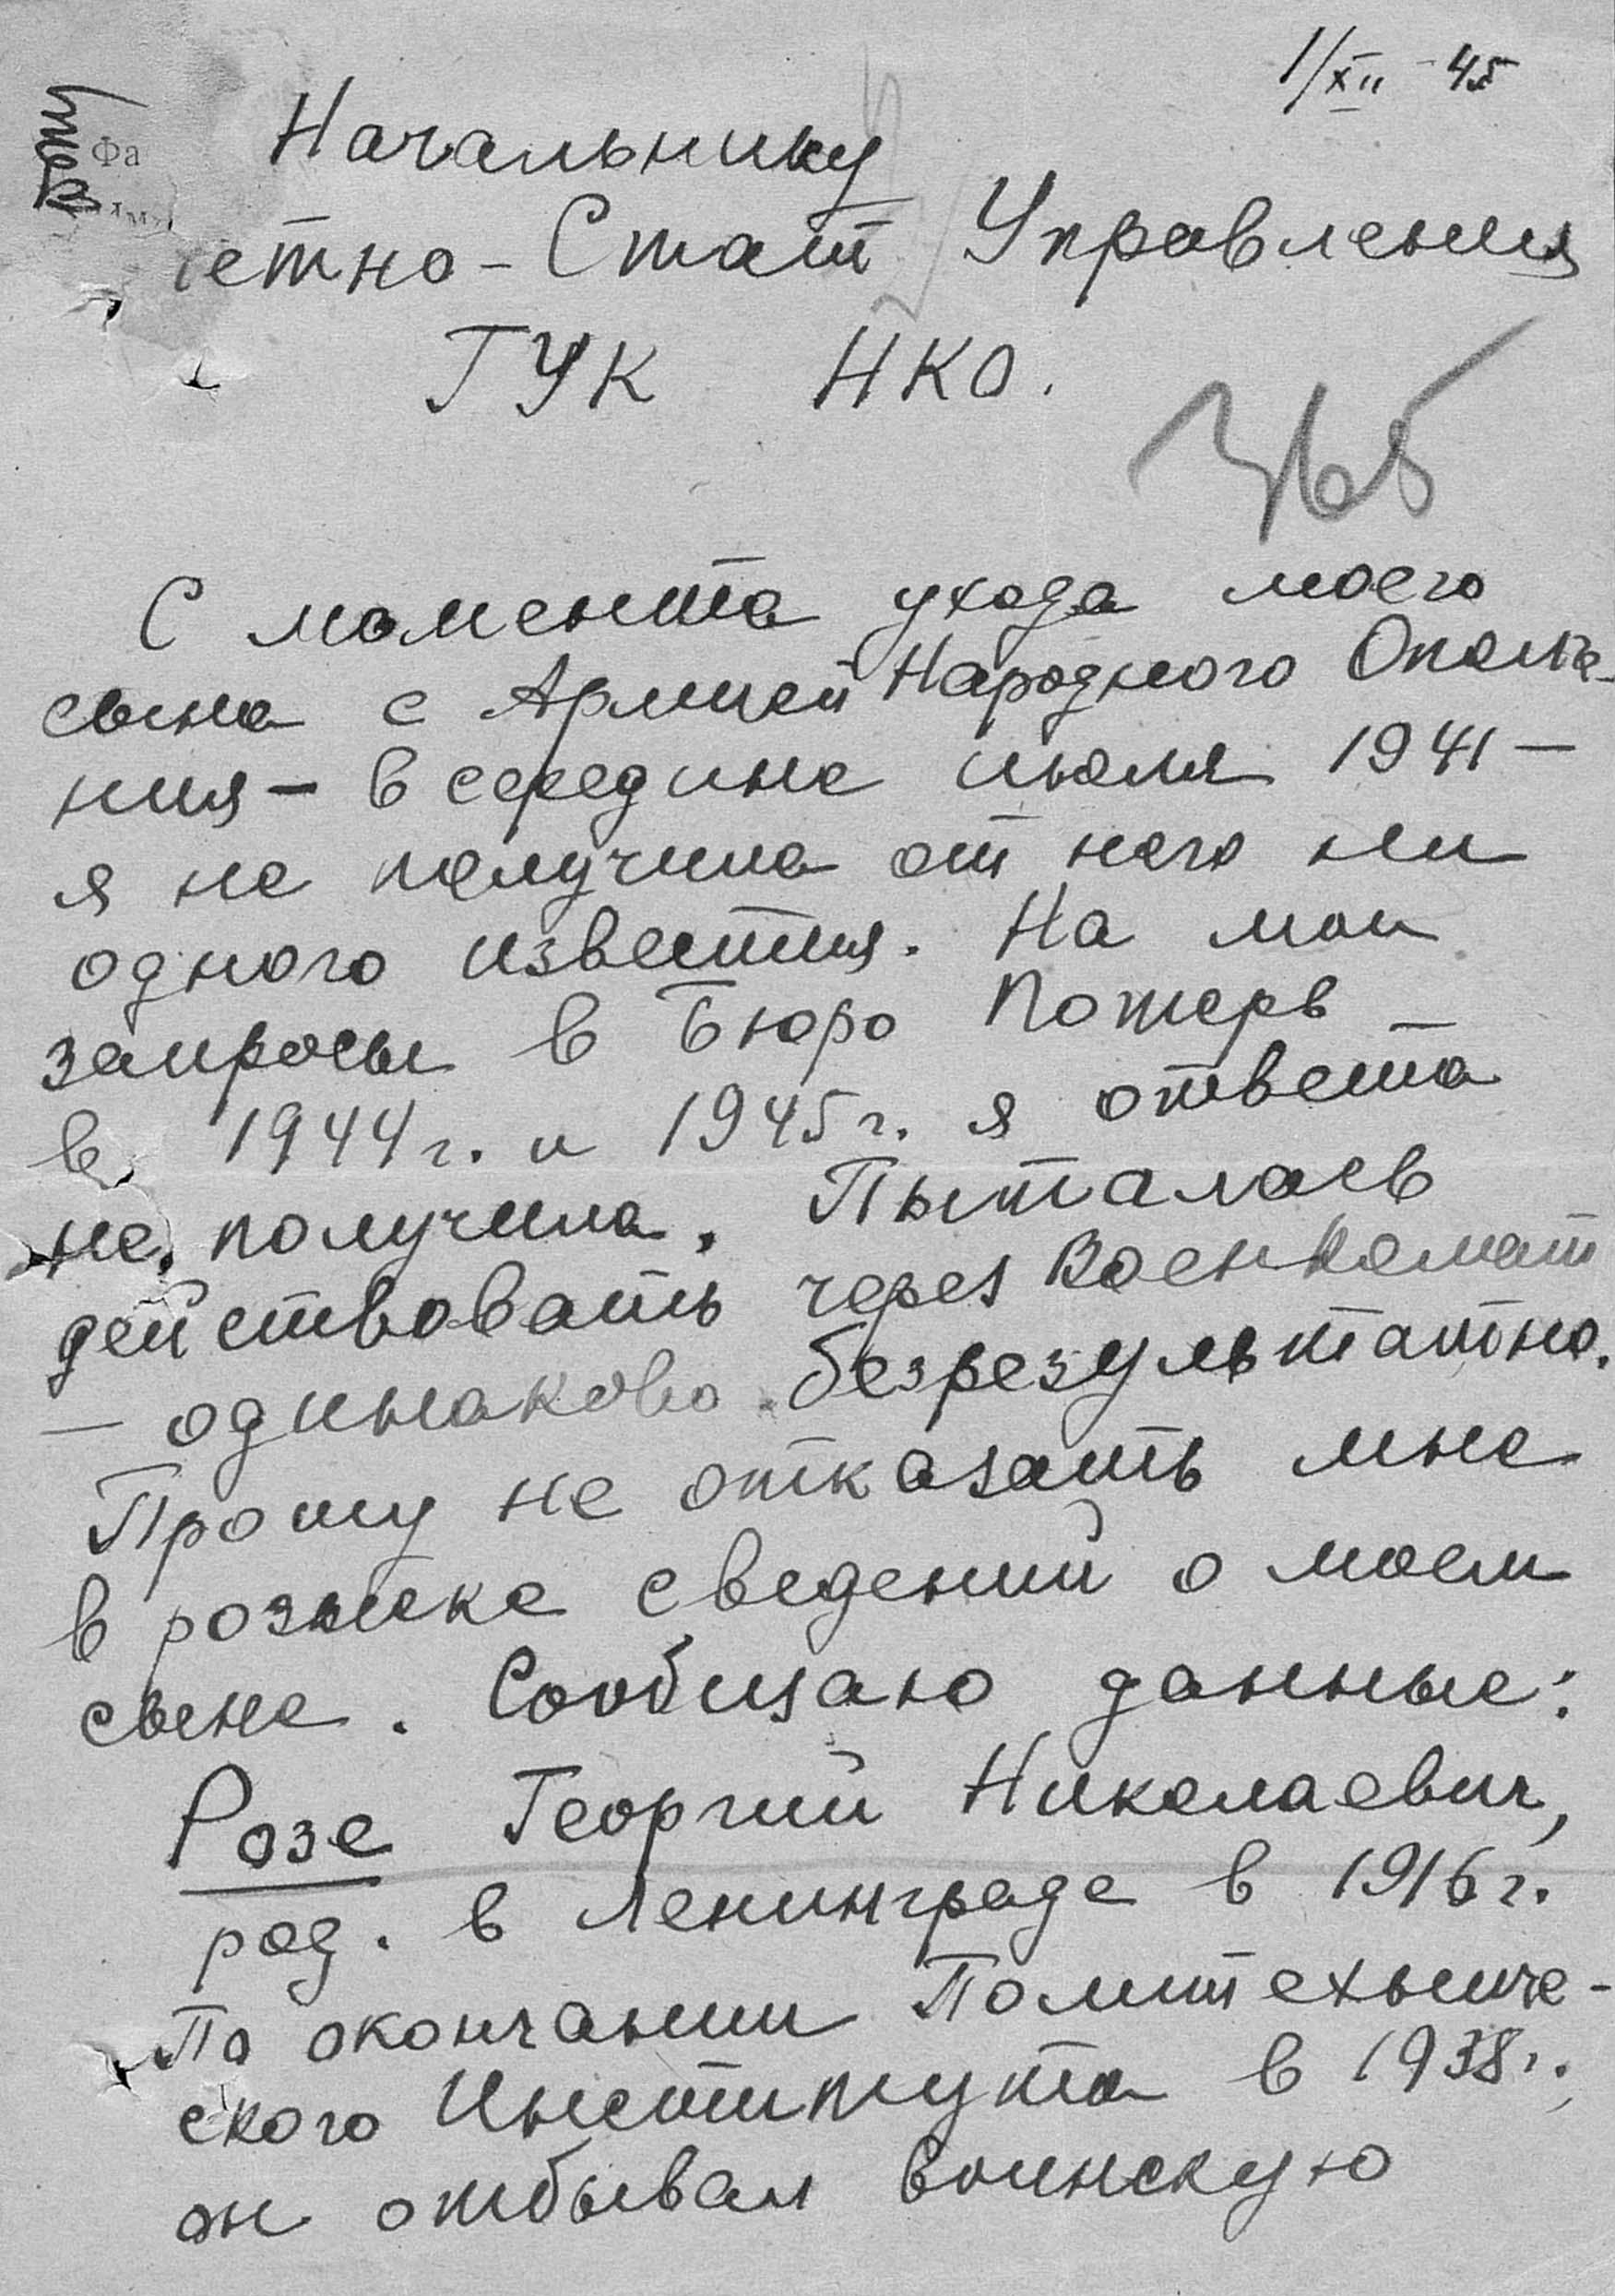 1/XII - 45
Фа
Начальнику
етно - Стат Управления
ГУК НКО.
С момента ухода моего
сына с Армией Народного Ополче-
ния - в середине июля 1941 -
я не получила от него ни
одного известия. На мои
запросы в Бюро Потерь
в 1944 г. и 1945 г. я ответа
не получила. Пыталась
действовать через Военкомат
- одинаково безрезультатно.
Прошу не отказать мне
в розыске сведений о моем
сыне. Сообщаю данные:
Розе Георгий Николаевич,
род. в Ленинграде в 1916 г.
По окончании Политехниче-
ского Института в 1938 г.
он отбывал воинскую